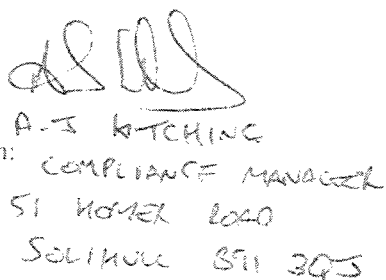 A.J KITCHING
n: COMPLIANCE MANAGER
51 HOMER ROAD
SOLIHULL B91 3QJ